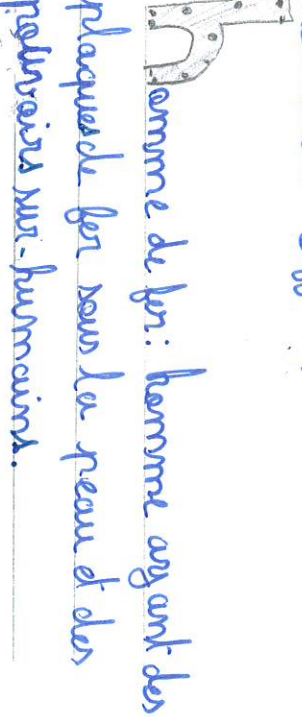 homme de fer : homme ayant des
plaques de fer sous la peau et des
pouvoirs sur-humains.